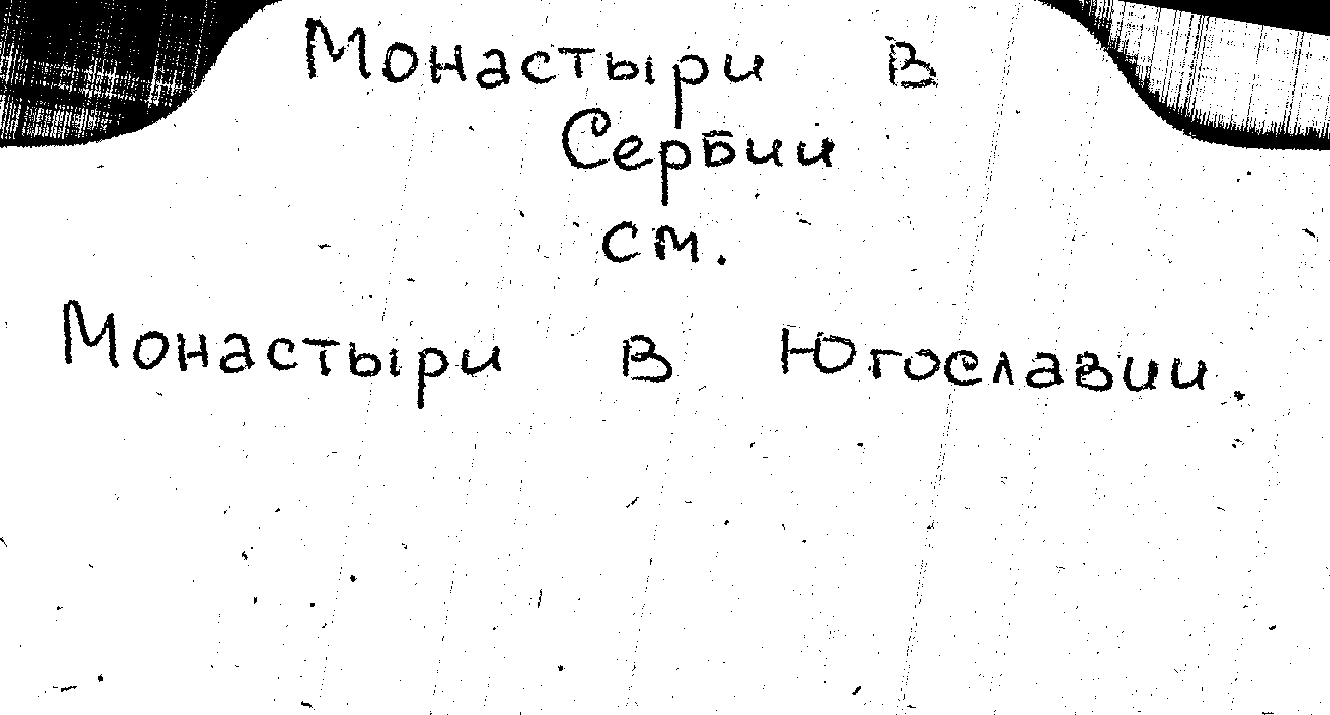 Монастыри в
Сербии
см.
Монастыри в Югославии.